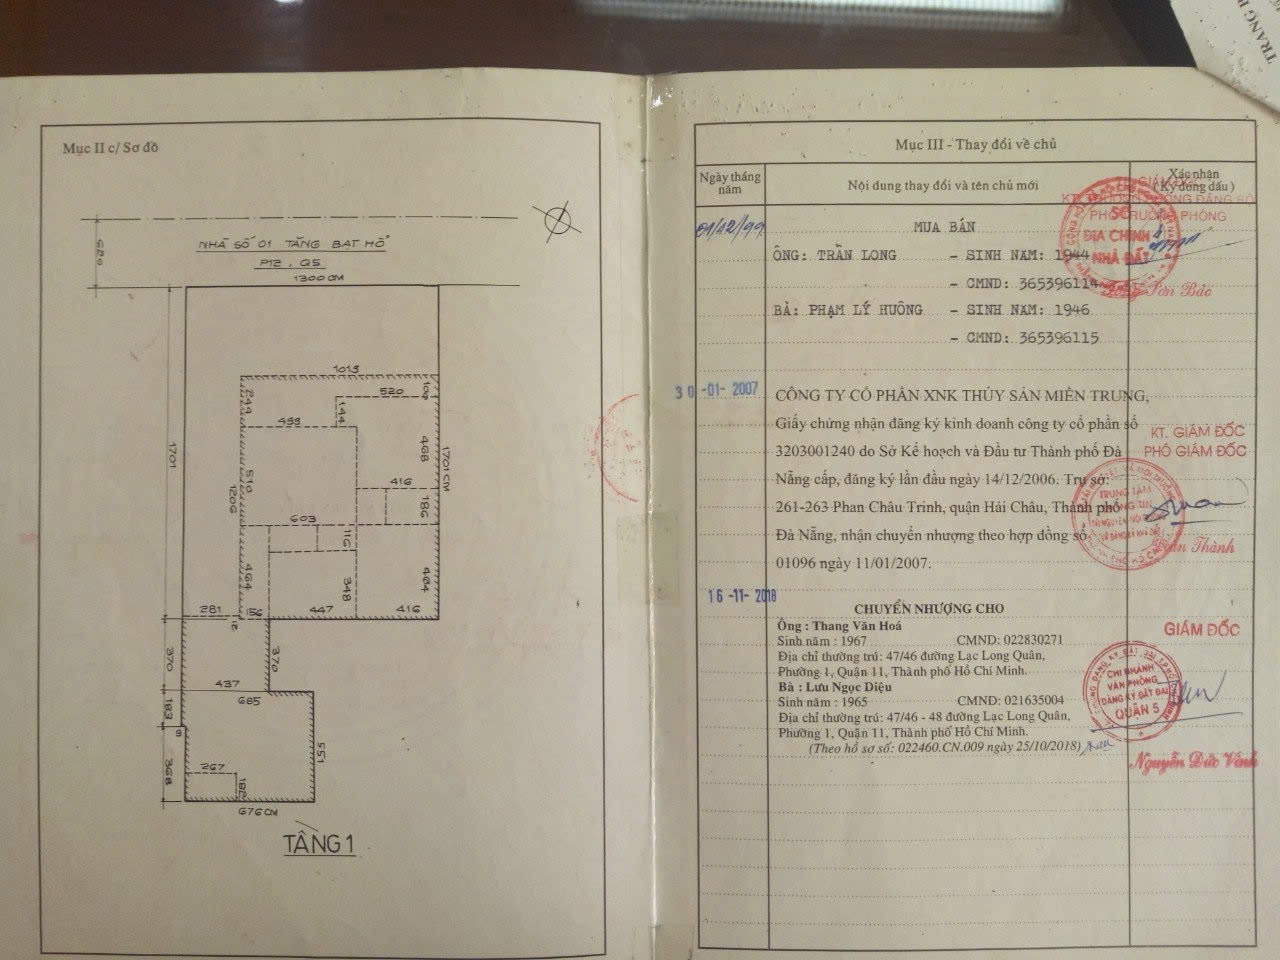 Mục II c/ Sơ đồ
NHÀ SỐ 01 TĂNG BẠT HỔ
P12, Q5
1300 CM
620
1701
1013
520
109
244
499
144
468
1701 CM
510
1206
416
186
603
116
464
348
404
281
156
447
416
12
370
370
437
685
193
9
551
368
267
187
676 CM
TẦNG 1
Mục III - Thay đổi về chủ
Ngày tháng năm
Nội dung thay đổi và tên chủ mới
Xác nhận
(Ký đóng dấu)
01/12/99
MUA BÁN
ÔNG: TRẦN LONG - SINH NĂM: 1944
- CMND: 365396114
BÀ: PHẠM LÝ HUÔNG - SINH NĂM: 1946
- CMND: 365396115
PHÓ TRƯỞNG PHÒNG
SỞ
ĐỊA CHÍNH
NHÀ ĐẤT
Sơn Bảo
30-01-2007
CÔNG TY CỔ PHẦN XNK THỦY SẢN MIỀN TRUNG,
Giấy chứng nhận đăng ký kinh doanh công ty cổ phần số
3203001240 do Sở Kế hoạch và Đầu tư Thành phố Đà
Nẵng cấp, đăng ký lần đầu ngày 14/12/2006. Trụ sở:
261-263 Phan Châu Trinh, quận Hải Châu, Thành phố
Đà Nẵng, nhận chuyển nhượng theo hợp đồng số
01096 ngày 11/01/2007.
KT. GIÁM ĐỐC
PHÓ GIÁM ĐỐC
TRUNG TÂM
THÔNG TIN
TÀI NGUYÊN-MÔI TRƯỜNG
VÀ ĐĂNG KÝ NHÀ ĐẤT
Thành
16-11-2018
CHUYỂN NHƯỢNG CHO
Ông : Thang Văn Hoá
Sinh năm : 1967 CMND: 022830271
Địa chỉ thường trú: 47/46 đường Lạc Long Quân,
Phường 1, Quận 11, Thành phố Hồ Chí Minh.
Bà : Lưu Ngọc Diệu
Sinh năm : 1965 CMND: 021635004
Địa chỉ thường trú: 47/46 - 48 đường Lạc Long Quân,
Phường 1, Quận 11, Thành phố Hồ Chí Minh.
(Theo hồ sơ số: 022460.CN.009 ngày 25/10/2018)
GIÁM ĐỐC
CHI NHÁNH
VĂN PHÒNG
ĐĂNG KÝ ĐẤT ĐAI
QUẬN 5
Nguyễn Đức Vinh